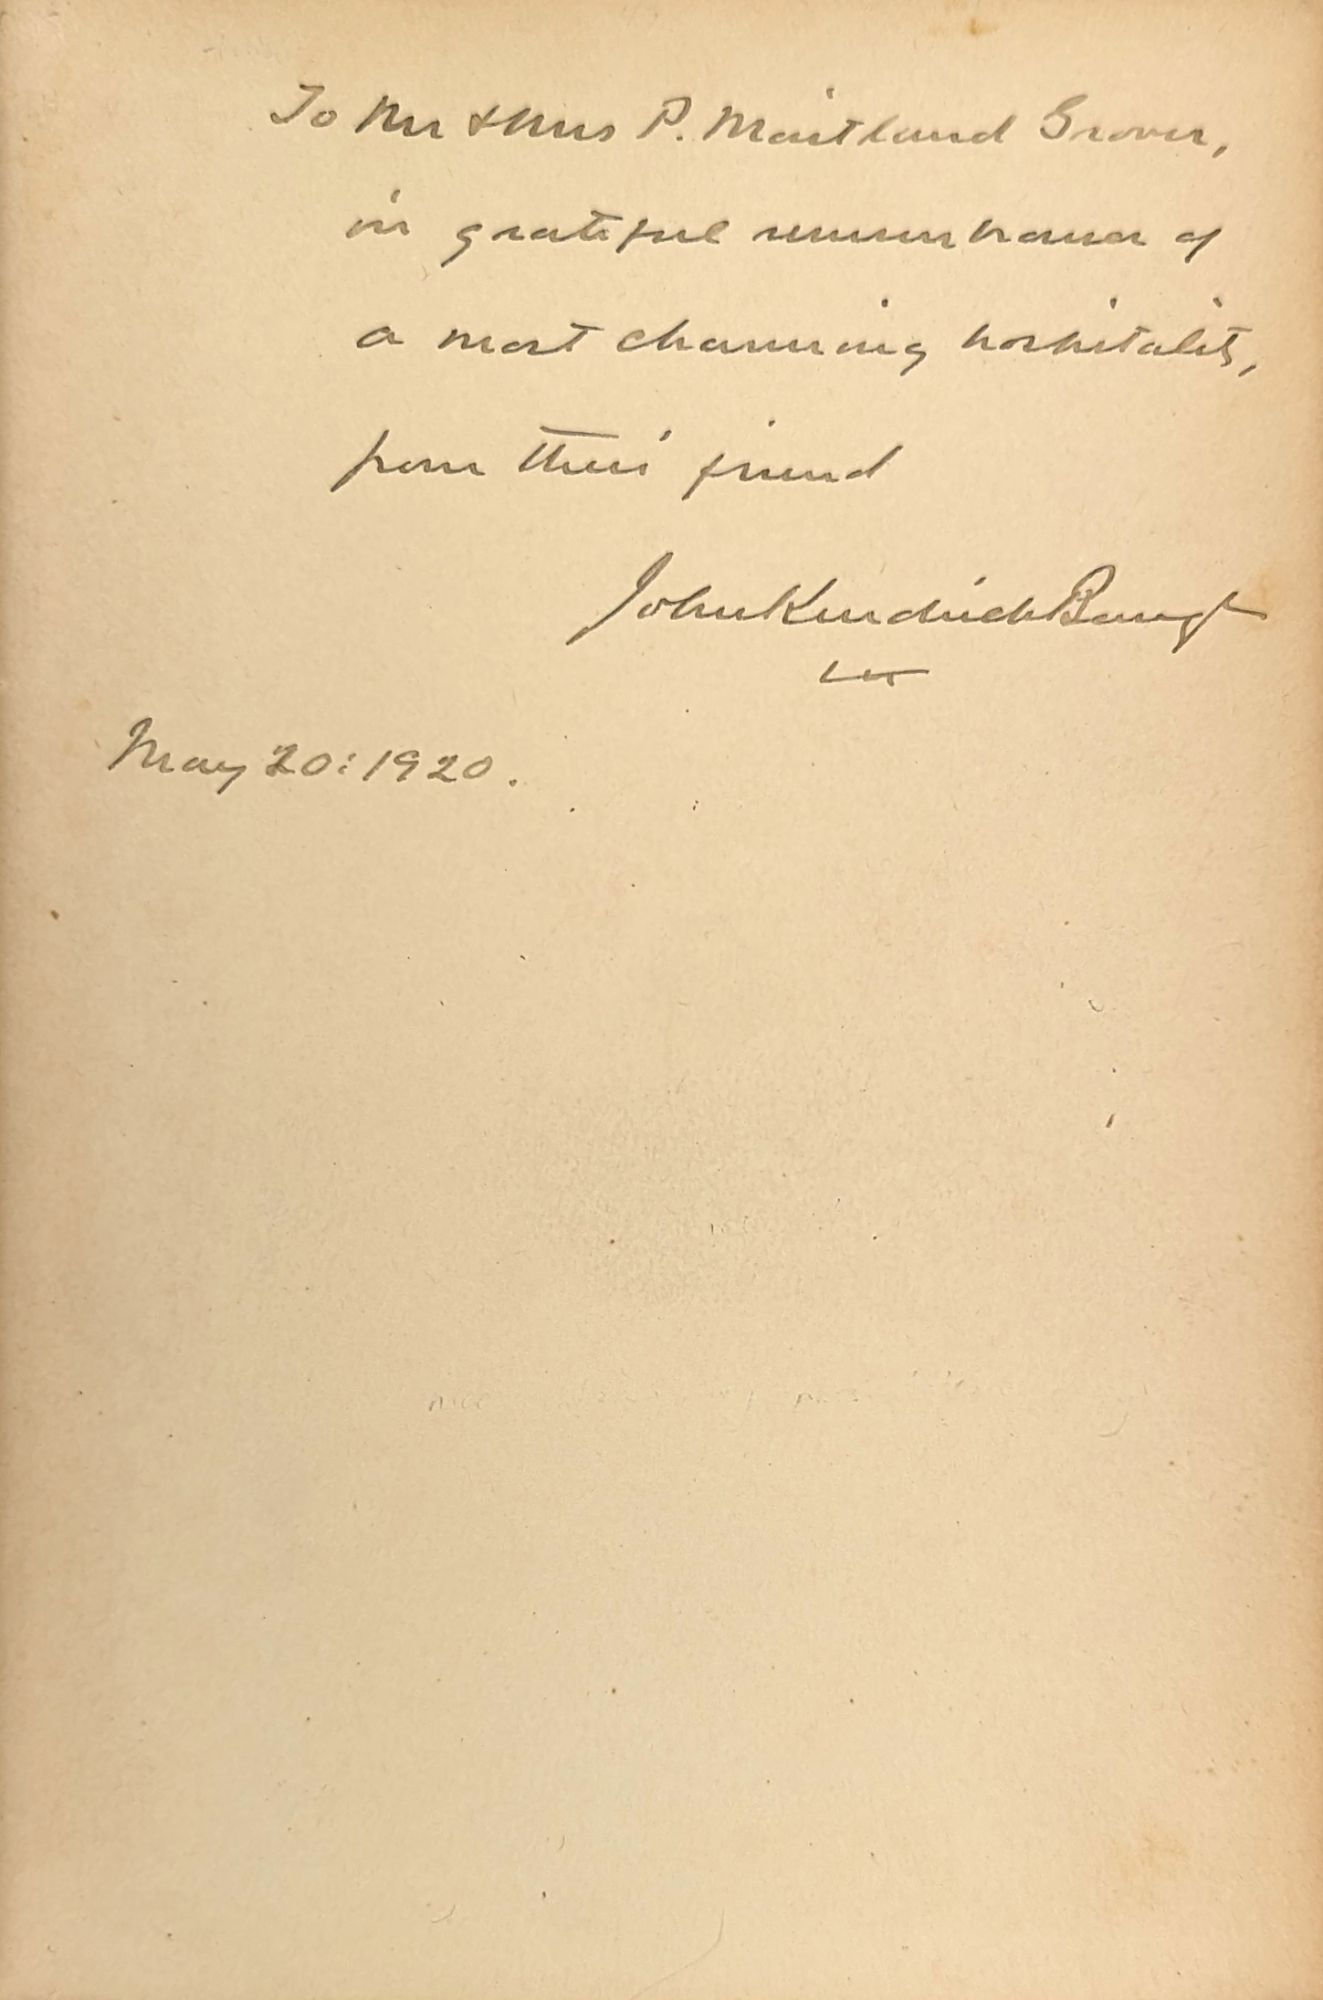 To Mr & Mrs P. Maitland Grover,
in grateful remembrance of
a most charming hospitality,
from their friend
John Kendrick Bangs
May 20: 1920.